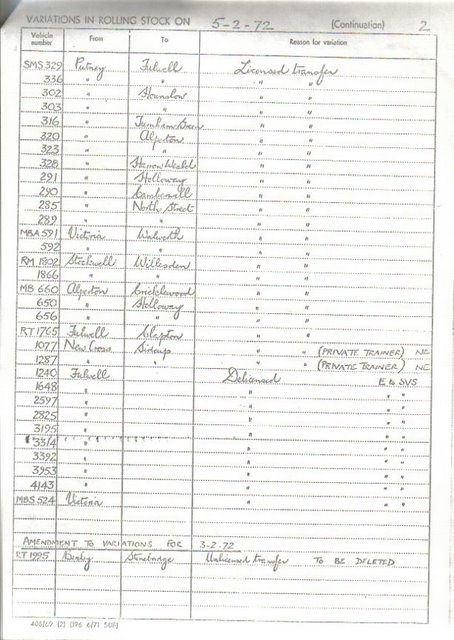 VARIATIONS IN ROLLING STOCK ON 5-2-72 (Continuation) 2
Vehicle number From To Reason for variation
SMS 329 Putney Fulwell Licensed transfer
336 " " " "
302 " Hounslow " "
303 " " " "
316 " Turnham Green " "
320 " Alperton " "
323 " " " "
328 " Harrow Weald " "
291 " Holloway " "
290 " Camberwell " "
285 " North Street " "
289 " " " "
MBA 591 Victoria Walworth " "
592 " " " "
RM 1802 Stockwell Willesden " "
1866 " " " "
MB 660 Alperton Cricklewood " "
650 " Holloway " "
656 " " " "
RT 1765 Fulwell Clapton " "
1077 New Cross Sidcup " " (PRIVATE TRAINER) NC
1287 " " " " (PRIVATE TRAINER) NC
1240 Fulwell Delicensed E to SVS
1648 " " " "
2597 " " " "
2825 " " " "
3195 " " " "
3314 " " " "
3392 " " " "
3953 " " " "
4143 " " " "
MBS 524 Victoria " " "
AMENDMENT TO VARIATIONS FOR 3-2-72
RT 1995 Bexley Stonebridge Unlicensed transfer TO BE DELETED